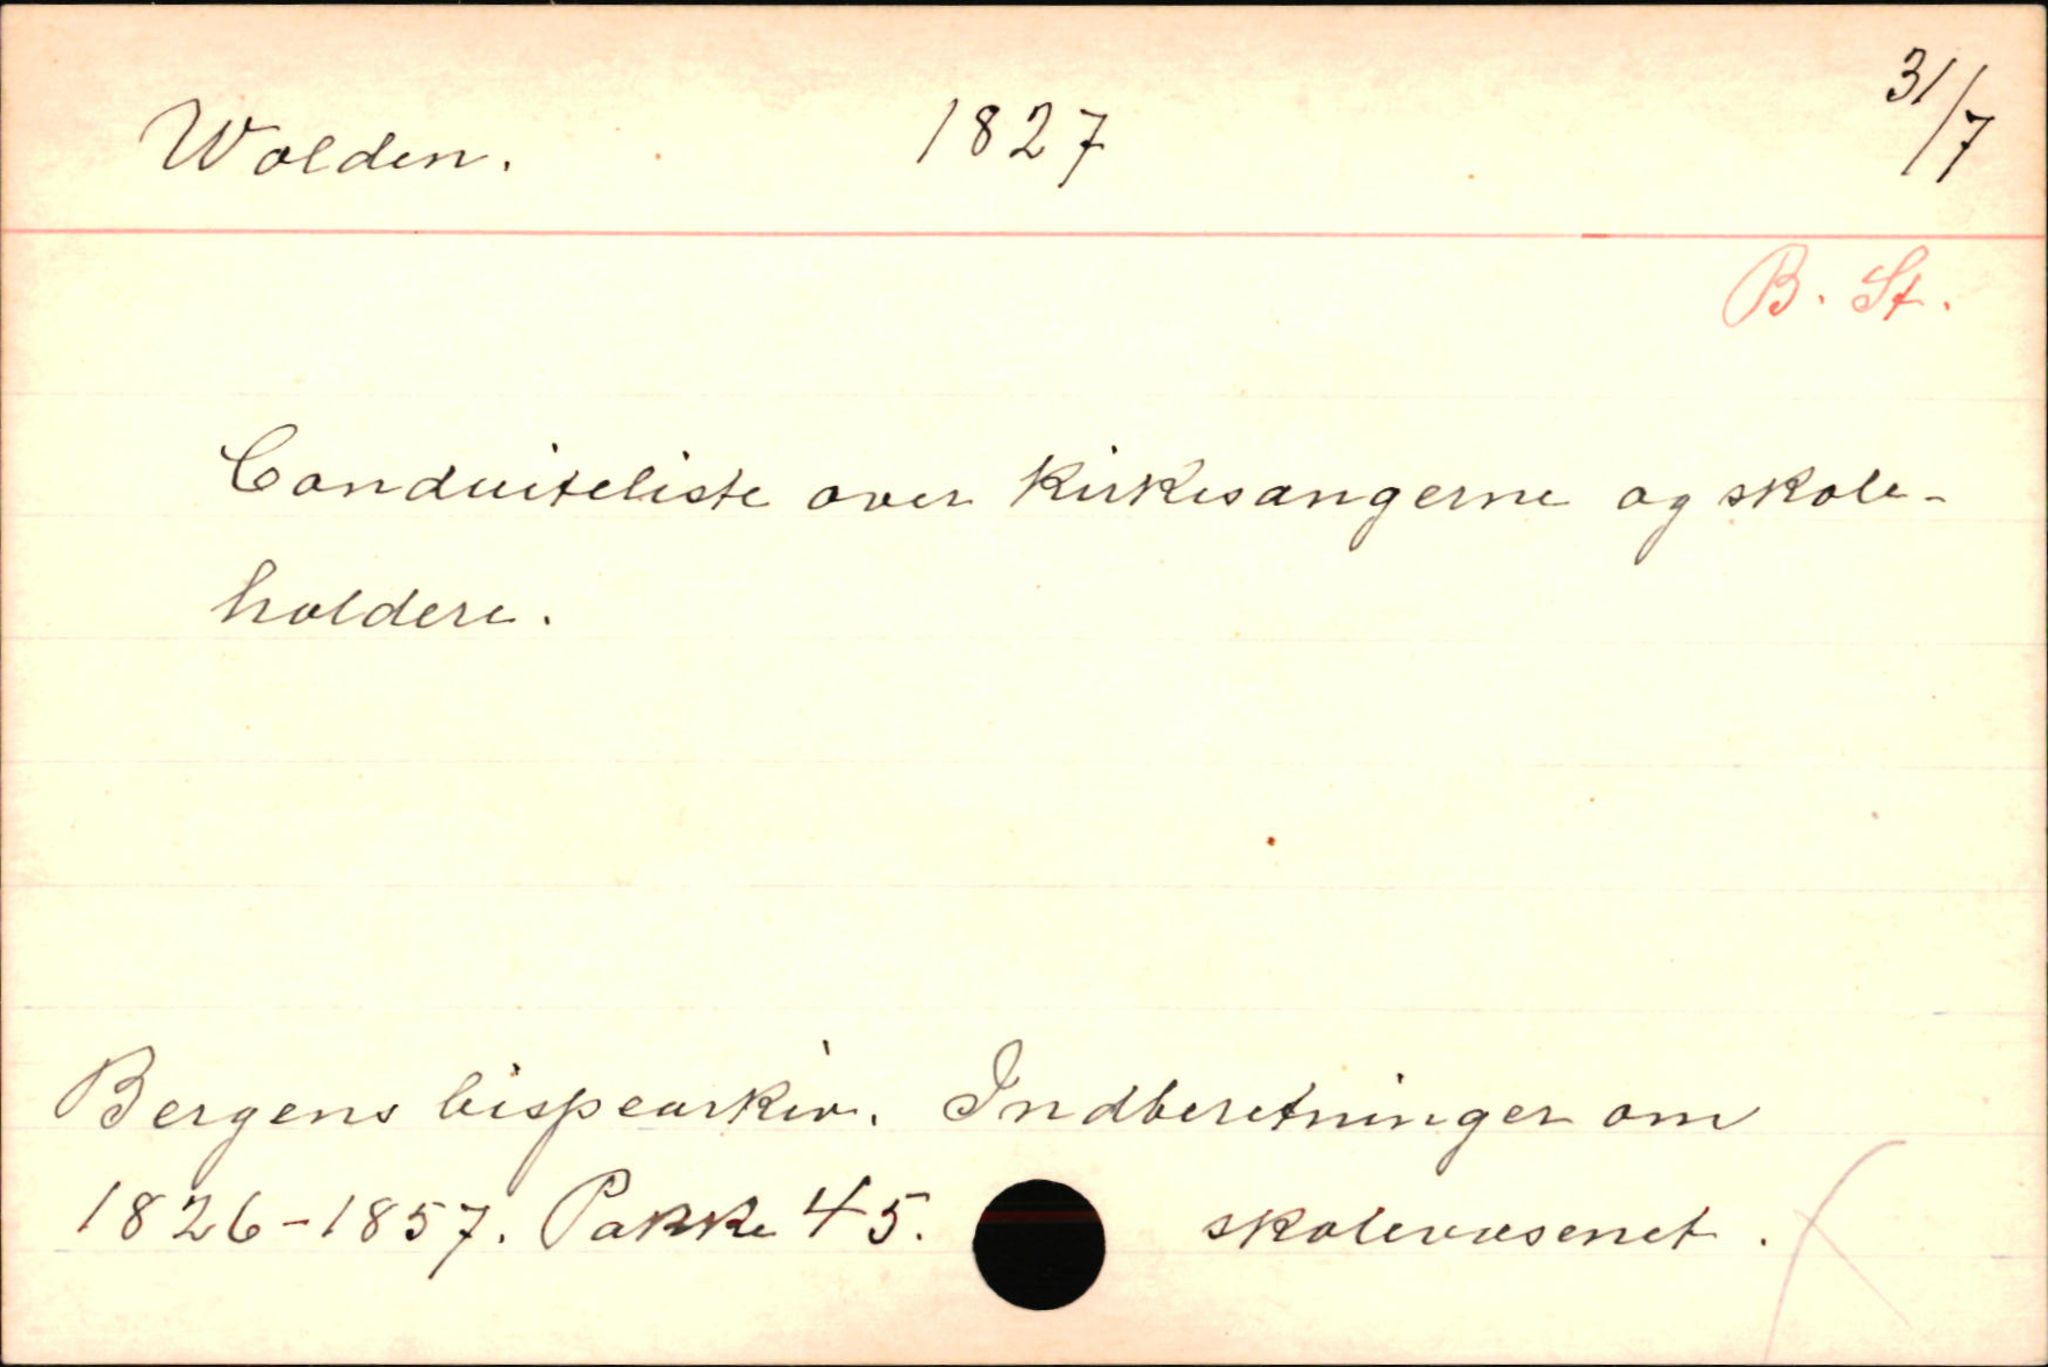 Wolden. 1827 31/7
B. St.
Conduiteliste over kirkesangerne og skole-
holdere.
Bergens bispearkiv. Indberetninger om
1826-1857. Pakke 45. skolevæsenet.